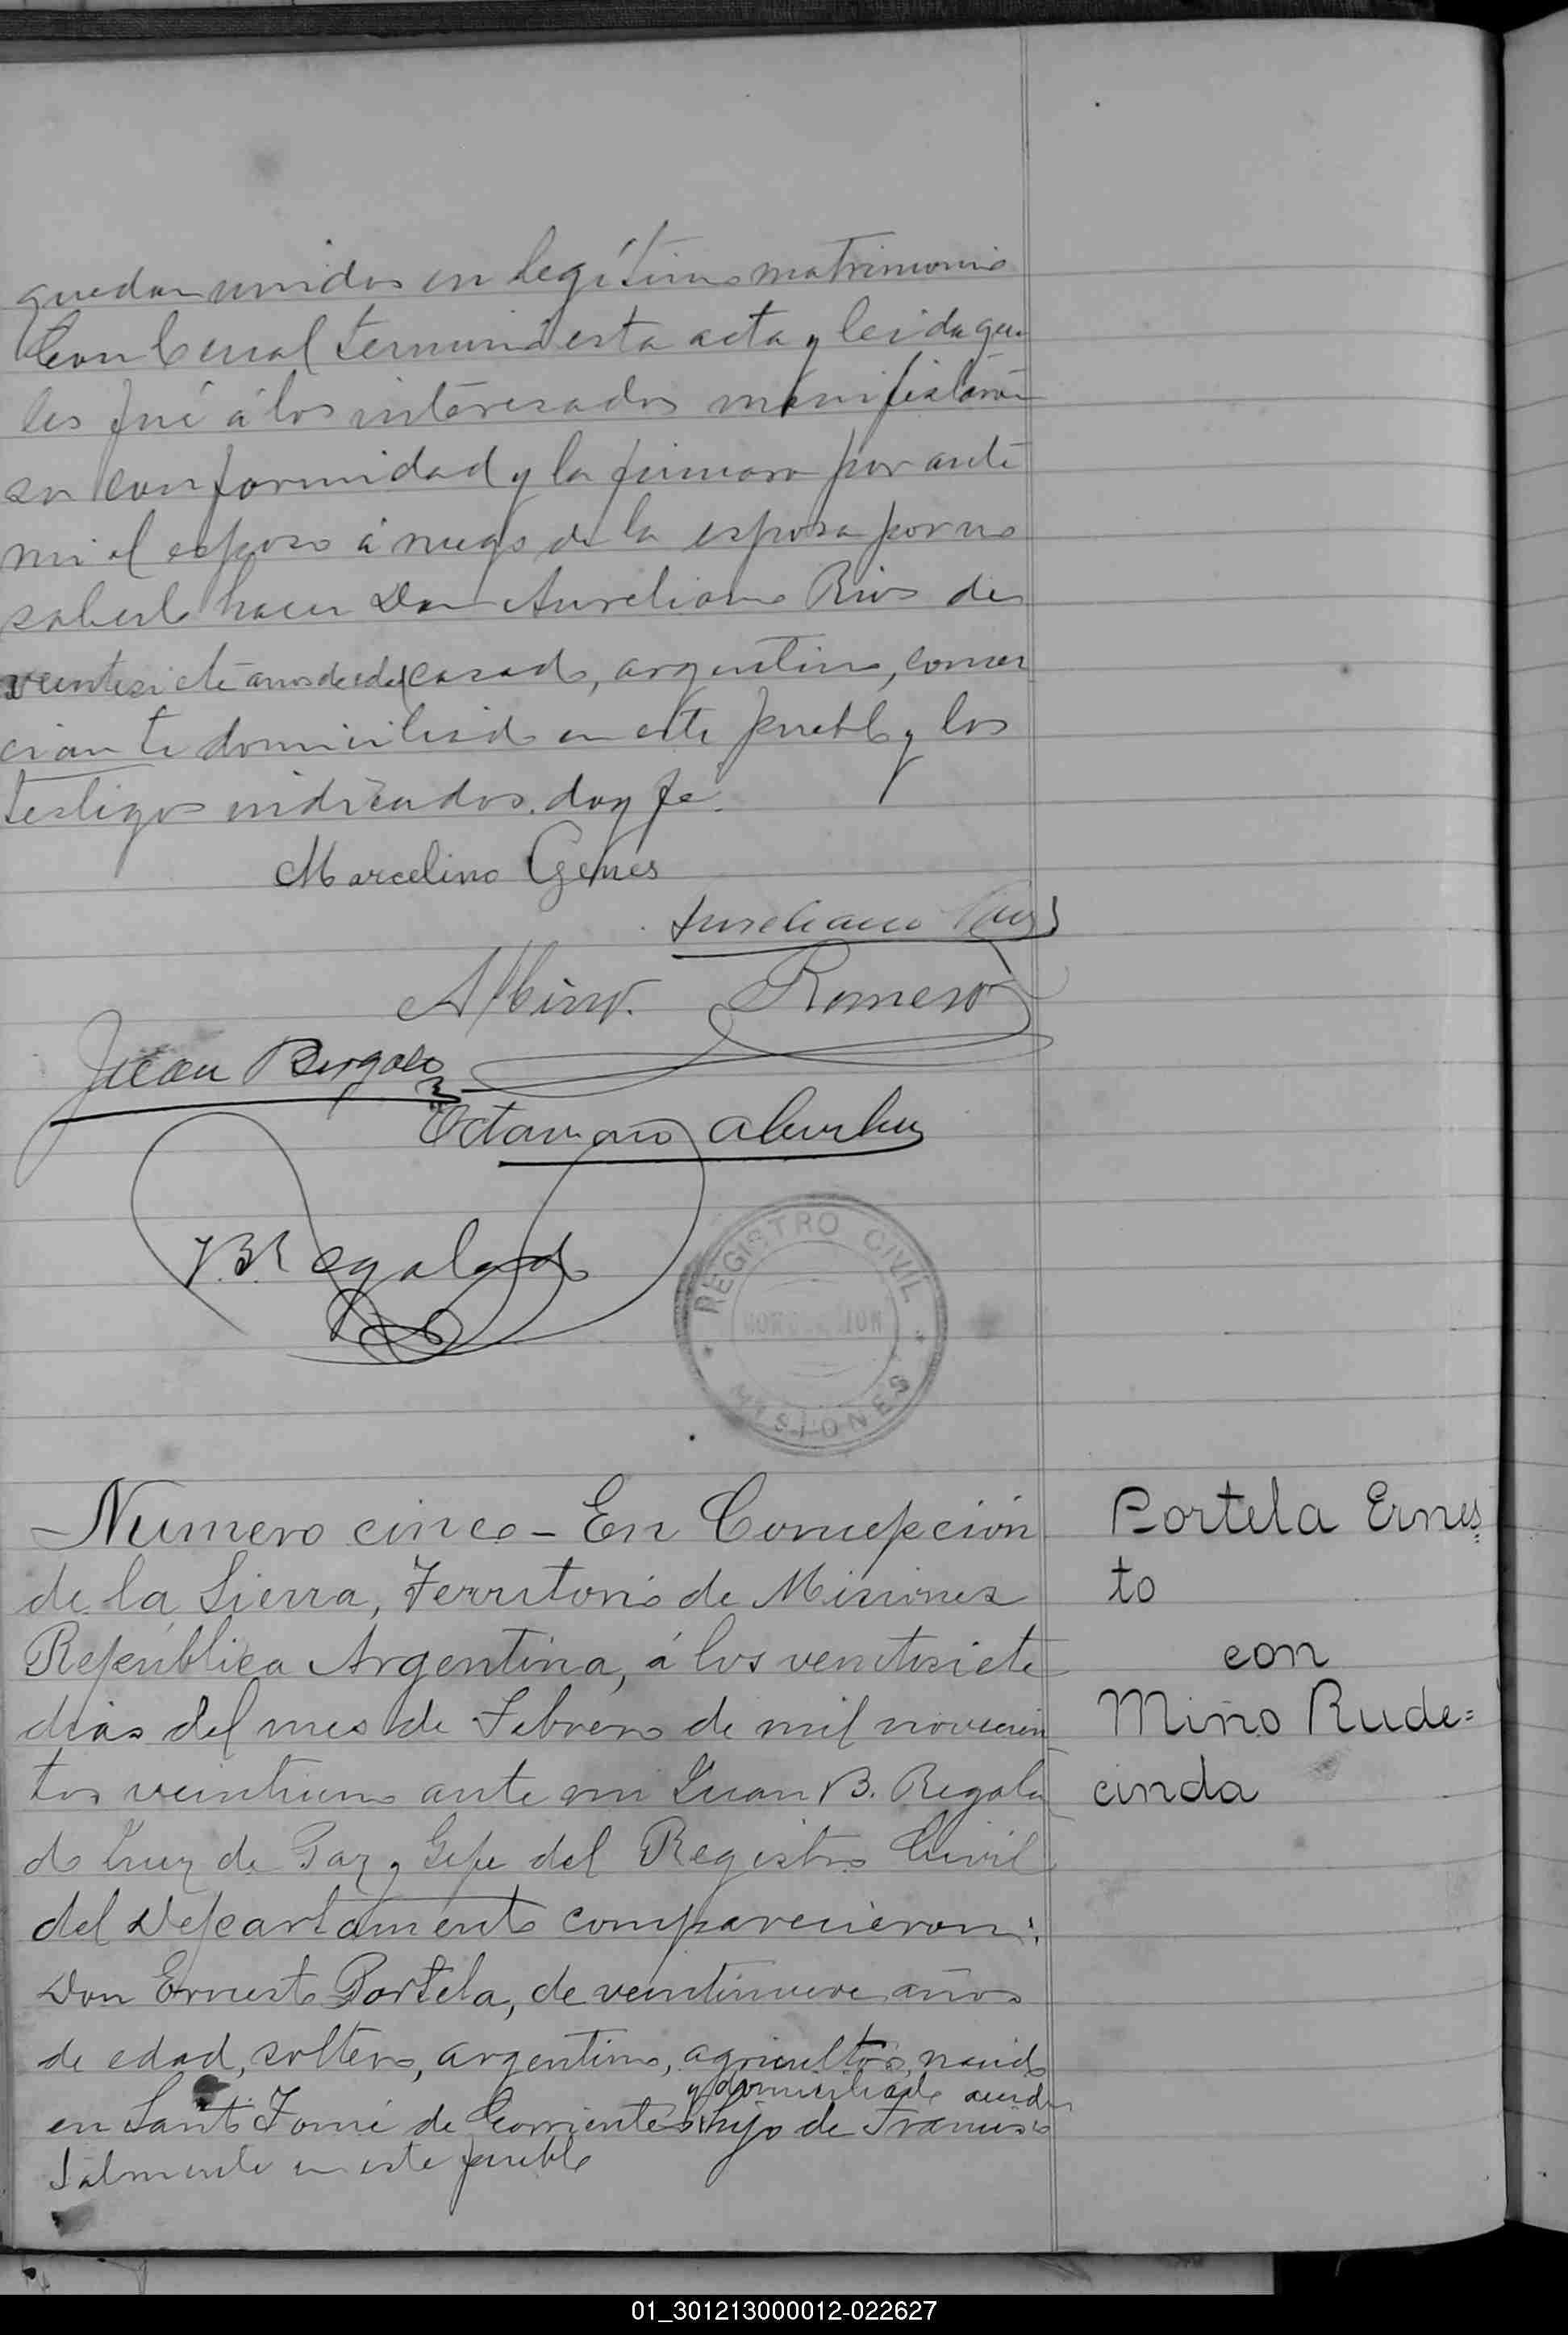 quedan unidos en legítimo matrimonio
Con lo cual terminó esta acta y leida que
les fué á los interesados manifestaron
su conformidad y la firmaron por ante
mi el esposo á ruego de la esposa por no
saberlo hacer Don Aureliano Rios de
veintisiete años de edad casado, argentino, comer
ciante domiciliado en este pueblo y los
testigos indicados. doy fe.
Marcelino Genes
Aureliano Rios
Albino Romero
Juan
Octaviano
J.B. Regalado
REGISTRO CIVIL
MISIONES
Numero cinco - En Concepción
de la Sierra, Territorio de Misiones
República Argentina, á los veintisiete
dias del mes de Febrero de mil novecien
tos veintiuno ante mi Juan B. Regala
do Juez de Paz y Gefe del Registro Civil
del Departamento comparecieron:
Don Ernesto Portela, de veintinueve años
de edad, soltero, argentino, agricultor, nacido
y domiciliado acciden
en Santo Tomé de Corrientes hijo de Francisco
talmente en este pueblo
Portela Ernes=
to
con
Miño Rude=
cinda
01_301213000012-022627